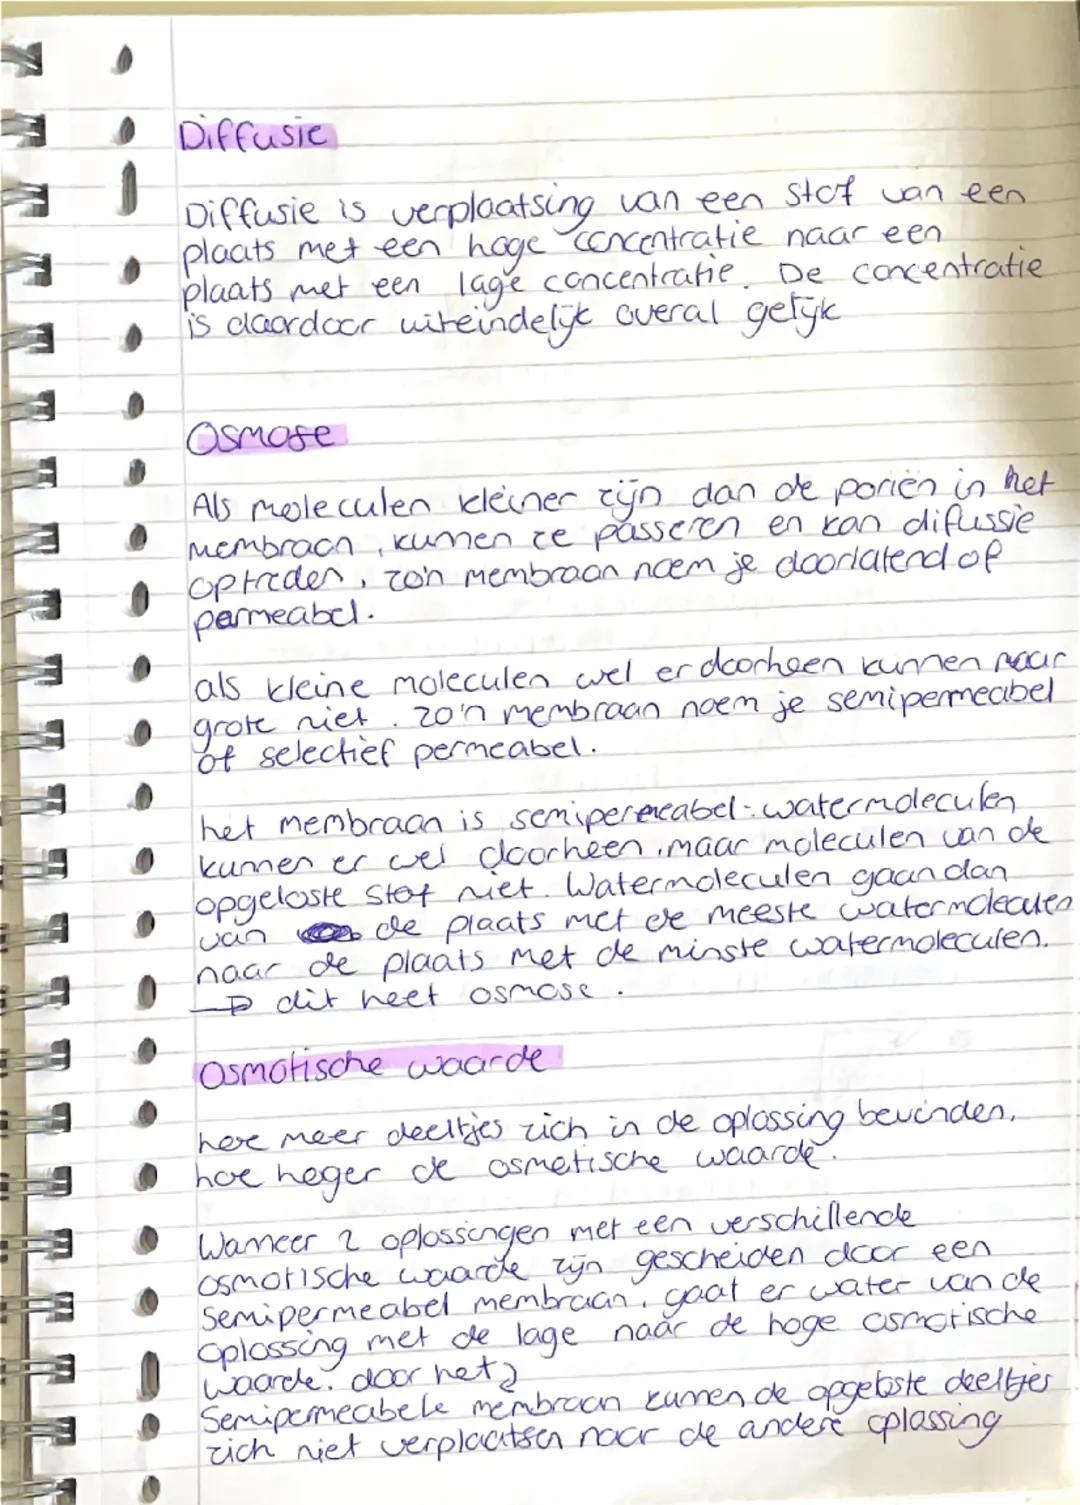 Diffusie
Diffusie is verplaatsing van een stof van een
plaats met een hoge concentratie naar een
plaats met een lage concentratie. De concentratie
is daardoor uiteindelijk overal gelijk
Osmose
Als moleculen kleiner zijn dan de poriën in het
membraan, kunnen ze passeren en kan difussie
optreden, zo'n membraan noem je doorlatend of
permeabel.
als kleine moleculen wel er doorheen kunnen maar
grote niet. zo'n membraan noem je semipermeabel
of selectief permeabel.
het membraan is semipermeabel: watermoleculen
kunnen er wel doorheen, maar moleculen van de
opgeloste stof niet. Watermoleculen gaan dan
van de plaats met de meeste watermoleculen
naar de plaats met de minste watermoleculen.
→ dit heet osmose.
Osmotische waarde
hoe meer deeltjes zich in de oplossing bevinden,
hoe hoger de osmotische waarde.
Wanneer 2 oplossingen met een verschillende
osmotische waarde zijn gescheiden door een
semipermeabel membraan, gaat er water van de
oplossing met de lage naar de hoge osmotische
waarde. door het
semipermeabele membraan kunnen de opgeloste deeltjes
zich niet verplaatsen naar de andere oplossing